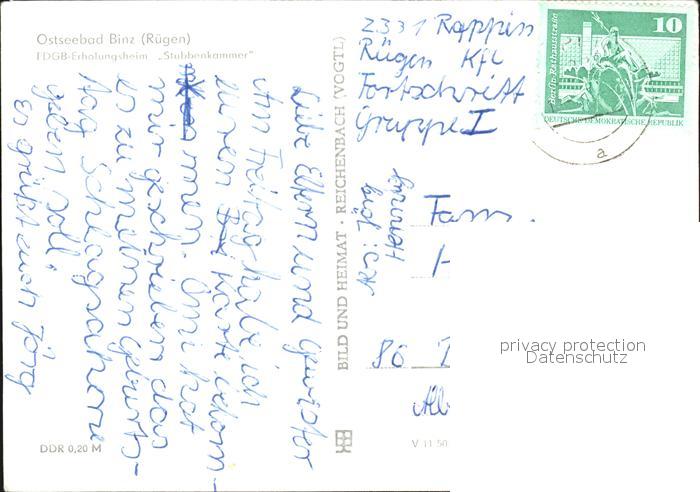 Ostseebad Binz (Rügen)
FDGB-Erholungsheim „Stubbenkammer"
Liebe Eltern und Gewister
Am Freitag habe ich
euren Karte bekom-
men. Omi hat
mir geschrieben das
es zu meinen Geburts-
tag Schlagsahne
geben soll.
Es grüßt euch Jörg
DDR 0,20 M
BILD UND HEIMAT · REICHENBACH (VOGTL)
V 11 50
2331 Rappin
Rügen Kfl
Fortschritt
Gruppe I
Fam.
H
86
Berlin-Rathausstraße
10
DEUTSCHE DEMOKRATISCHE REPUBLIK
a
privacy protection
Datenschutz